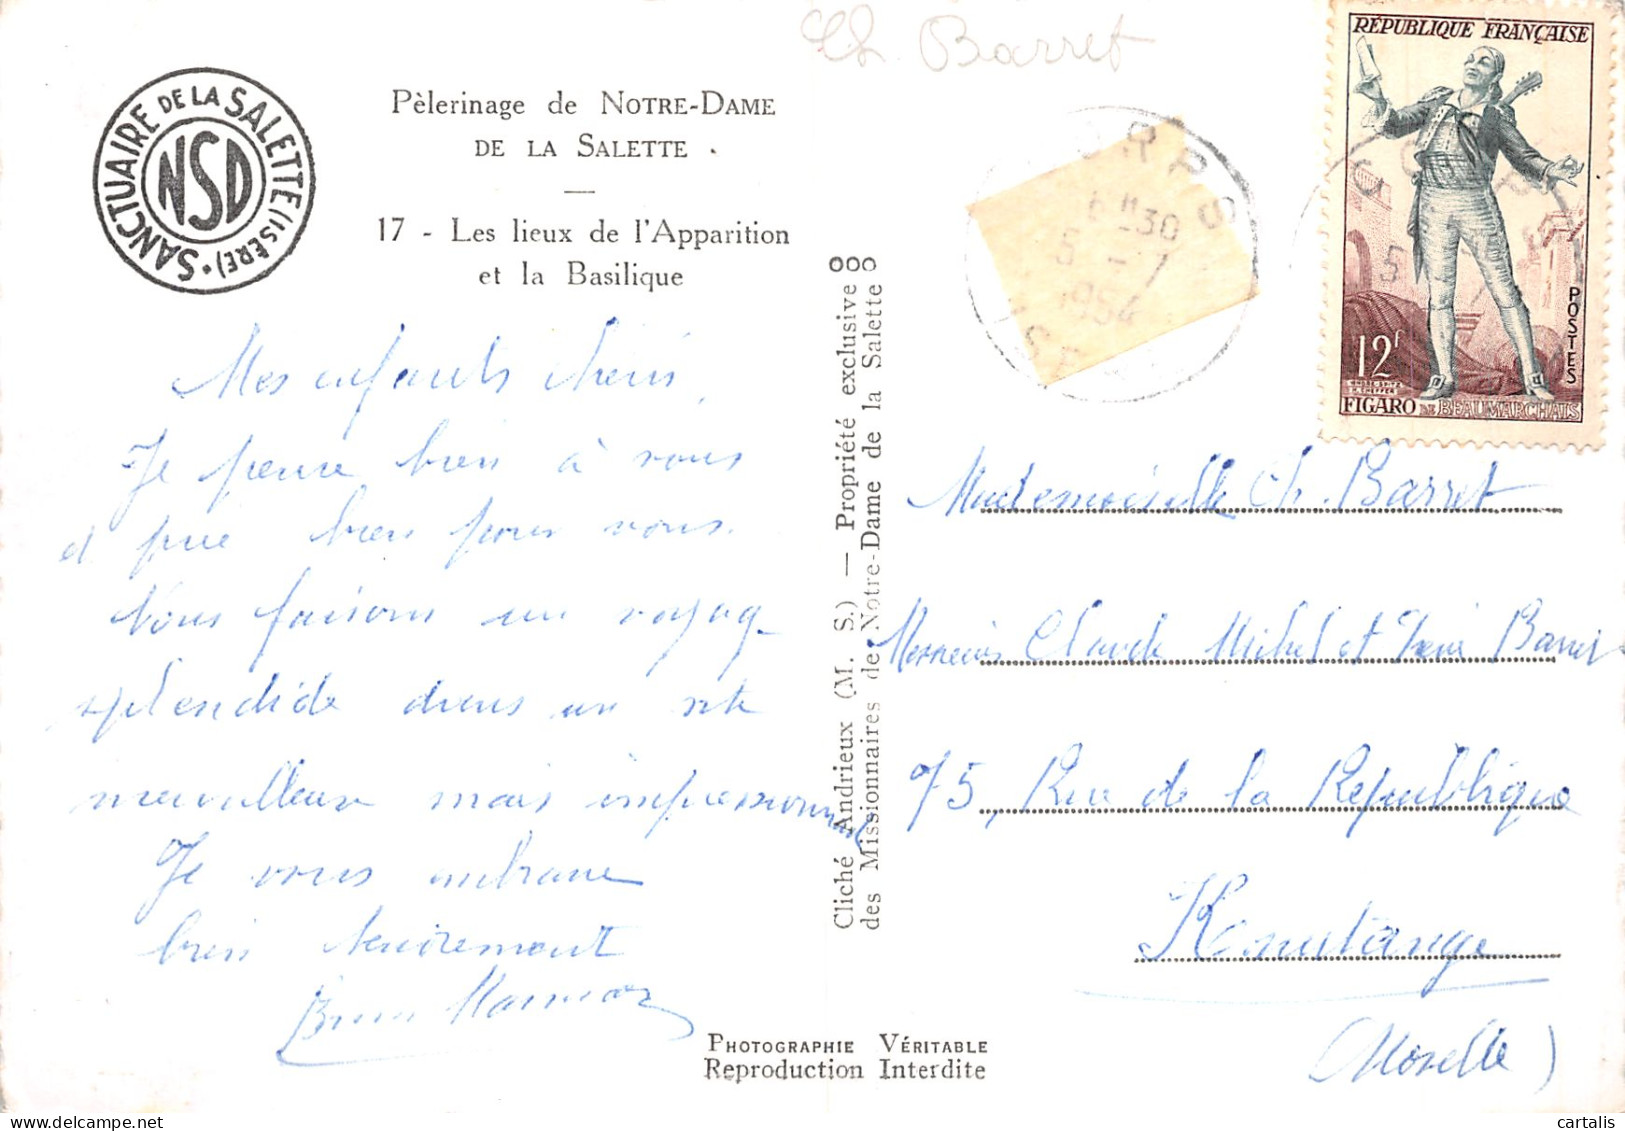 Ch Barret
SANCTUAIRE DE LA SALETTE (ISÈRE) •
NSD
Pèlerinage de NOTRE-DAME
DE LA SALETTE
17 - Les lieux de l'Apparition
et la Basilique
Mes enfants chéris
Je pense bien à vous
et prie bien pour vous.
Nous faisons un voyage
splendide dans un site
merveilleux mais impressionnant
Je vous embrasse
bien tendrement
Cliché Andrieux (M. S.) — Propriété exclusive
des Missionnaires de Notre-Dame de la Salette
CORPS
6 H 30
5 - 7
1954
ISÈRE
RÉPUBLIQUE FRANÇAISE
POSTES
12f
FIGARO DE BEAUMARCHAIS
CORPS
5
Mademoiselle Ch. Barret
Messieurs Claude Michel et Barret
75, Rue de la République
(Moselle)
PHOTOGRAPHIE VÉRITABLE
Reproduction Interdite
cartalis